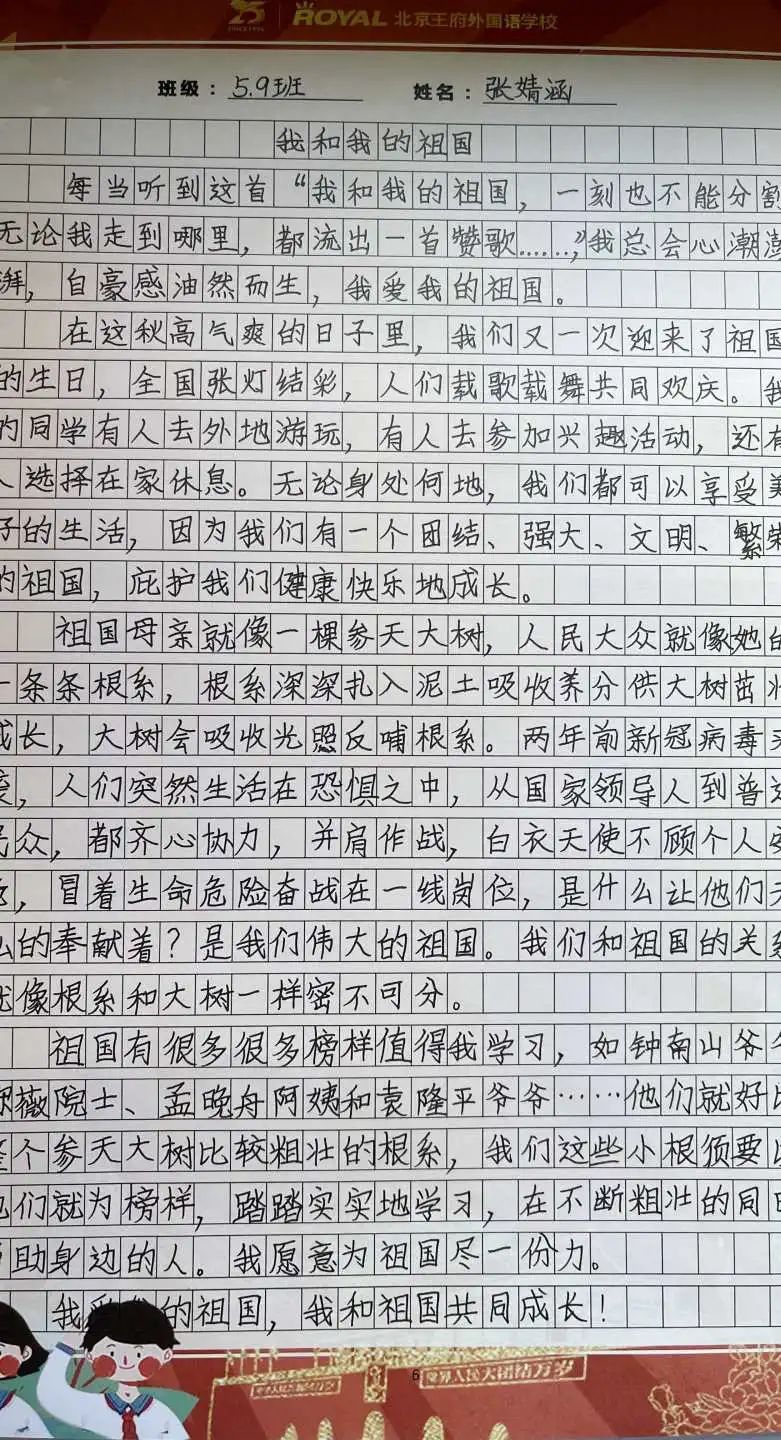 25 SINCE 1996 ROYAL 北京王府外国语学校
班级：5.9班 姓名：张婧涵
我和我的祖国
每当听到这首“我和我的祖国，一刻也不能分割
无论我走到哪里，都流出一首赞歌……”，我总会心潮澎
湃，自豪感油然而生，我爱我的祖国。
在这秋高气爽的日子里，我们又一次迎来了祖国
的生日，全国张灯结彩，人们载歌载舞共同欢庆。我
的同学有人去外地游玩，有人去参加兴趣活动，还有
人选择在家休息。无论身处何地，我们都可以享受美
好的生活，因为我们有一个团结、强大、文明、繁荣
的祖国，庇护我们健康快乐地成长。
祖国母亲就像一棵参天大树，人民大众就像她的
一条条根系，根系深深扎入泥土吸收养分供大树茁壮
成长，大树会吸收光照反哺根系。两年前新冠病毒
，人们突然生活在恐惧之中，从国家领导人到普通
民众，都齐心协力，并肩作战，白衣天使不顾个人安
危，冒着生命危险奋战在一线岗位，是什么让他们无
私的奉献着？是我们伟大的祖国。我们和祖国的关系
就像根系和大树一样密不可分。
祖国有很多很多榜样值得我学习，如钟南山爷爷
薇院士、孟晚舟阿姨和袁隆平爷爷……他们就好比
整个参天大树比较粗壮的根系，我们这些小根须要以
他们就为榜样，踏踏实实地学习，在不断粗壮的同时
助身边的人。我愿意为祖国尽一份力。
我爱我的祖国，我和祖国共同成长！
6
世界人民大团结万岁